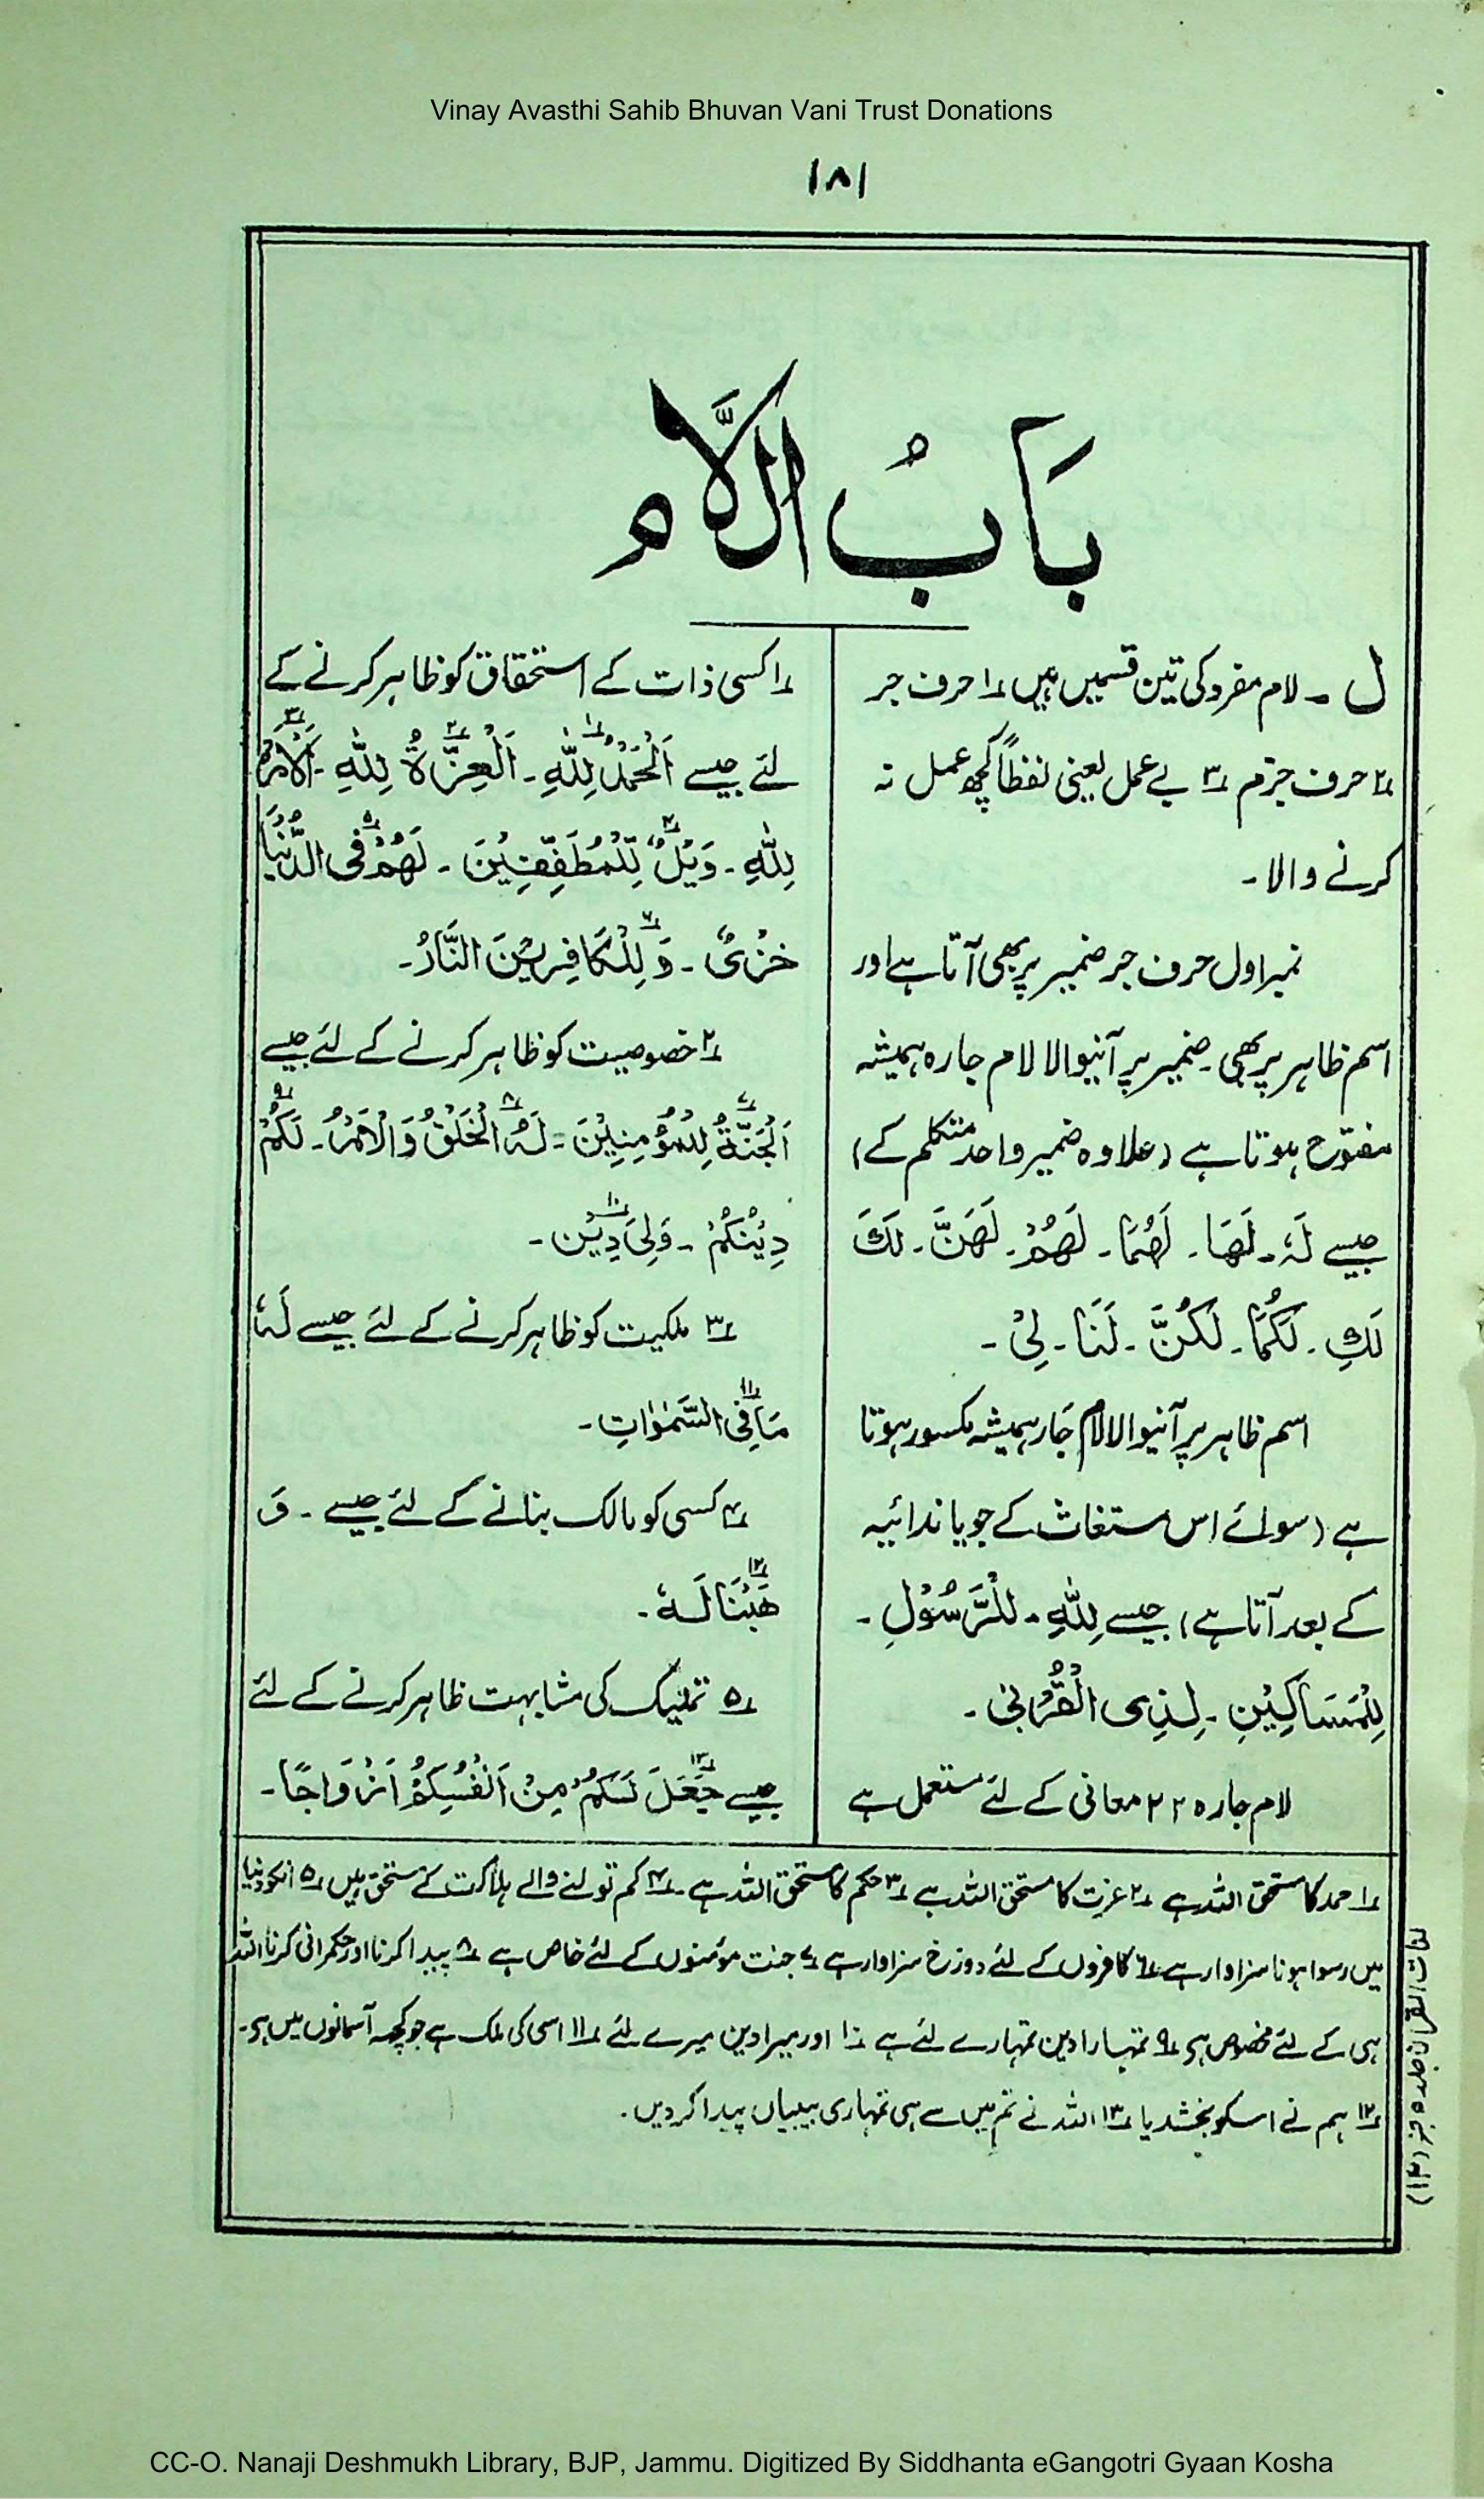 Vinay Avasthi Sahib Bhuvan Vani Trust Donations
۱۸۱
بَابُ الَّلام
ل ۔ لام مفرد کی تین قسمیں ہیں ؂۱ حرف جر
؂۲ حرف جزم ؂۳ بے عمل یعنی لفظاً کچھ عمل نہ
کرنے والا۔
نمبر اول حرف جر ضمیر پر بھی آتا ہے اور
اسم ظاہر پر بھی۔ ضمیر پر آنیوالا لام جارہ ہمیشہ
مفتوح ہوتا ہے (علاوہ ضمیر واحد متکلم کے)
جیسے لَہٗ۔ لَھَا۔ لَھُمَا۔ لَھُمْ۔ لَھُنَّ۔ لَکَ
لَکِ۔ لَکُمَا۔ لَکُنَّ۔ لَنَا۔ لِیْ۔
اسم ظاہر پر آنیوالا لام جَار ہمیشہ مکسور ہوتا
ہے (سوائے اس مستغاث کے جو یا ندائیہ
کے بعد آتا ہے) جیسے لِلّٰہِ۔ لِلْرَّسُوْلِ۔
لِلْمَسَاکِیْنِ۔ لِذِی الْقُرْبٰی۔
لام جارہ ۲۲ معانی کے لئے مستعمل ہے
؂۱ کسی ذات کے استحقاق کو ظاہر کرنے کے
لئے جیسے اَلْحَمْدُ لِلّٰہِ؂۱۔ اَلْعِزَّۃُ لِلّٰہِ؂۲۔ اَلْاَمْرُ؂۳
لِلّٰہِ۔ وَیْلٌ لِّلْمُطَفِّفِیْنَ؂۴۔ لَھُمْ فِی الدُّنْیَا؂۵
خِزْیٌ۔ وَلِلْکَافِرِیْنَ النَّارُ؂۶۔
؂۲ خصوصیت کو ظاہر کرنے کے لئے جیسے
اَلْجَنَّۃُ لِلْمُؤْمِنِیْنَ؂۷۔ لَہُ الْخَلْقُ وَالْاَمْرُ؂۸۔ لَکُمْ؂۹
دِیْنُکُمْ۔ وَلِیَ دِیْنِ؂۱۰۔
؂۳ ملکیت کو ظاہر کرنے کے لئے جیسے لَہٗ
مَا فِی السَّمٰوٰاتِ؂۱۱۔
؂۴ کسی کو مالک بنانے کے لئے جیسے ۔ وَ
ھَبْنَا لَہٗ؂۱۲۔
؂۵ تملیک کی مشابہت ظاہر کرنے کے لئے
جیسے جَعَلَ لَکُمْ مِنْ اَنْفُسِکُمْ اَزْوَاجًا؂۱۳۔
؂۱ حمد کا مستحق اللہ ہے ؂۲ عزت کا مستحق اللہ ہے ؂۳ حکم کا مستحق اللہ ہے۔ ؂۴ کم تولنے والے ہلاکت کے مستحق ہیں ؂۵ انکو دنیا
میں رسوا ہونا سزاوار ہے ؂۶ کافروں کے لئے دوزخ سزاوار ہے ؂۷ جنت مؤمنوں کے لئے خاص ہے ؂۸ پیدا کرنا اور حکمرانی کرنا اللہ
ہی کے لئے مخصوص ہی ؂۹ تمہارا دین تمہارے لئے ہے ؂۱۰ اور میرا دین میرے لئے ؂۱۱ اسی کی ملک ہے جو کچھ آسمانوں میں ہی۔
؂۱۲ ہم نے اسکو بخشدیا ؂۱۳ اللہ نے تم میں سے ہی تمہاری بیبیاں پیدا کر دیں۔
لغات القرآن جلد ۵ جز (۱۲)
CC-O. Nanaji Deshmukh Library, BJP, Jammu. Digitized By Siddhanta eGangotri Gyaan Kosha